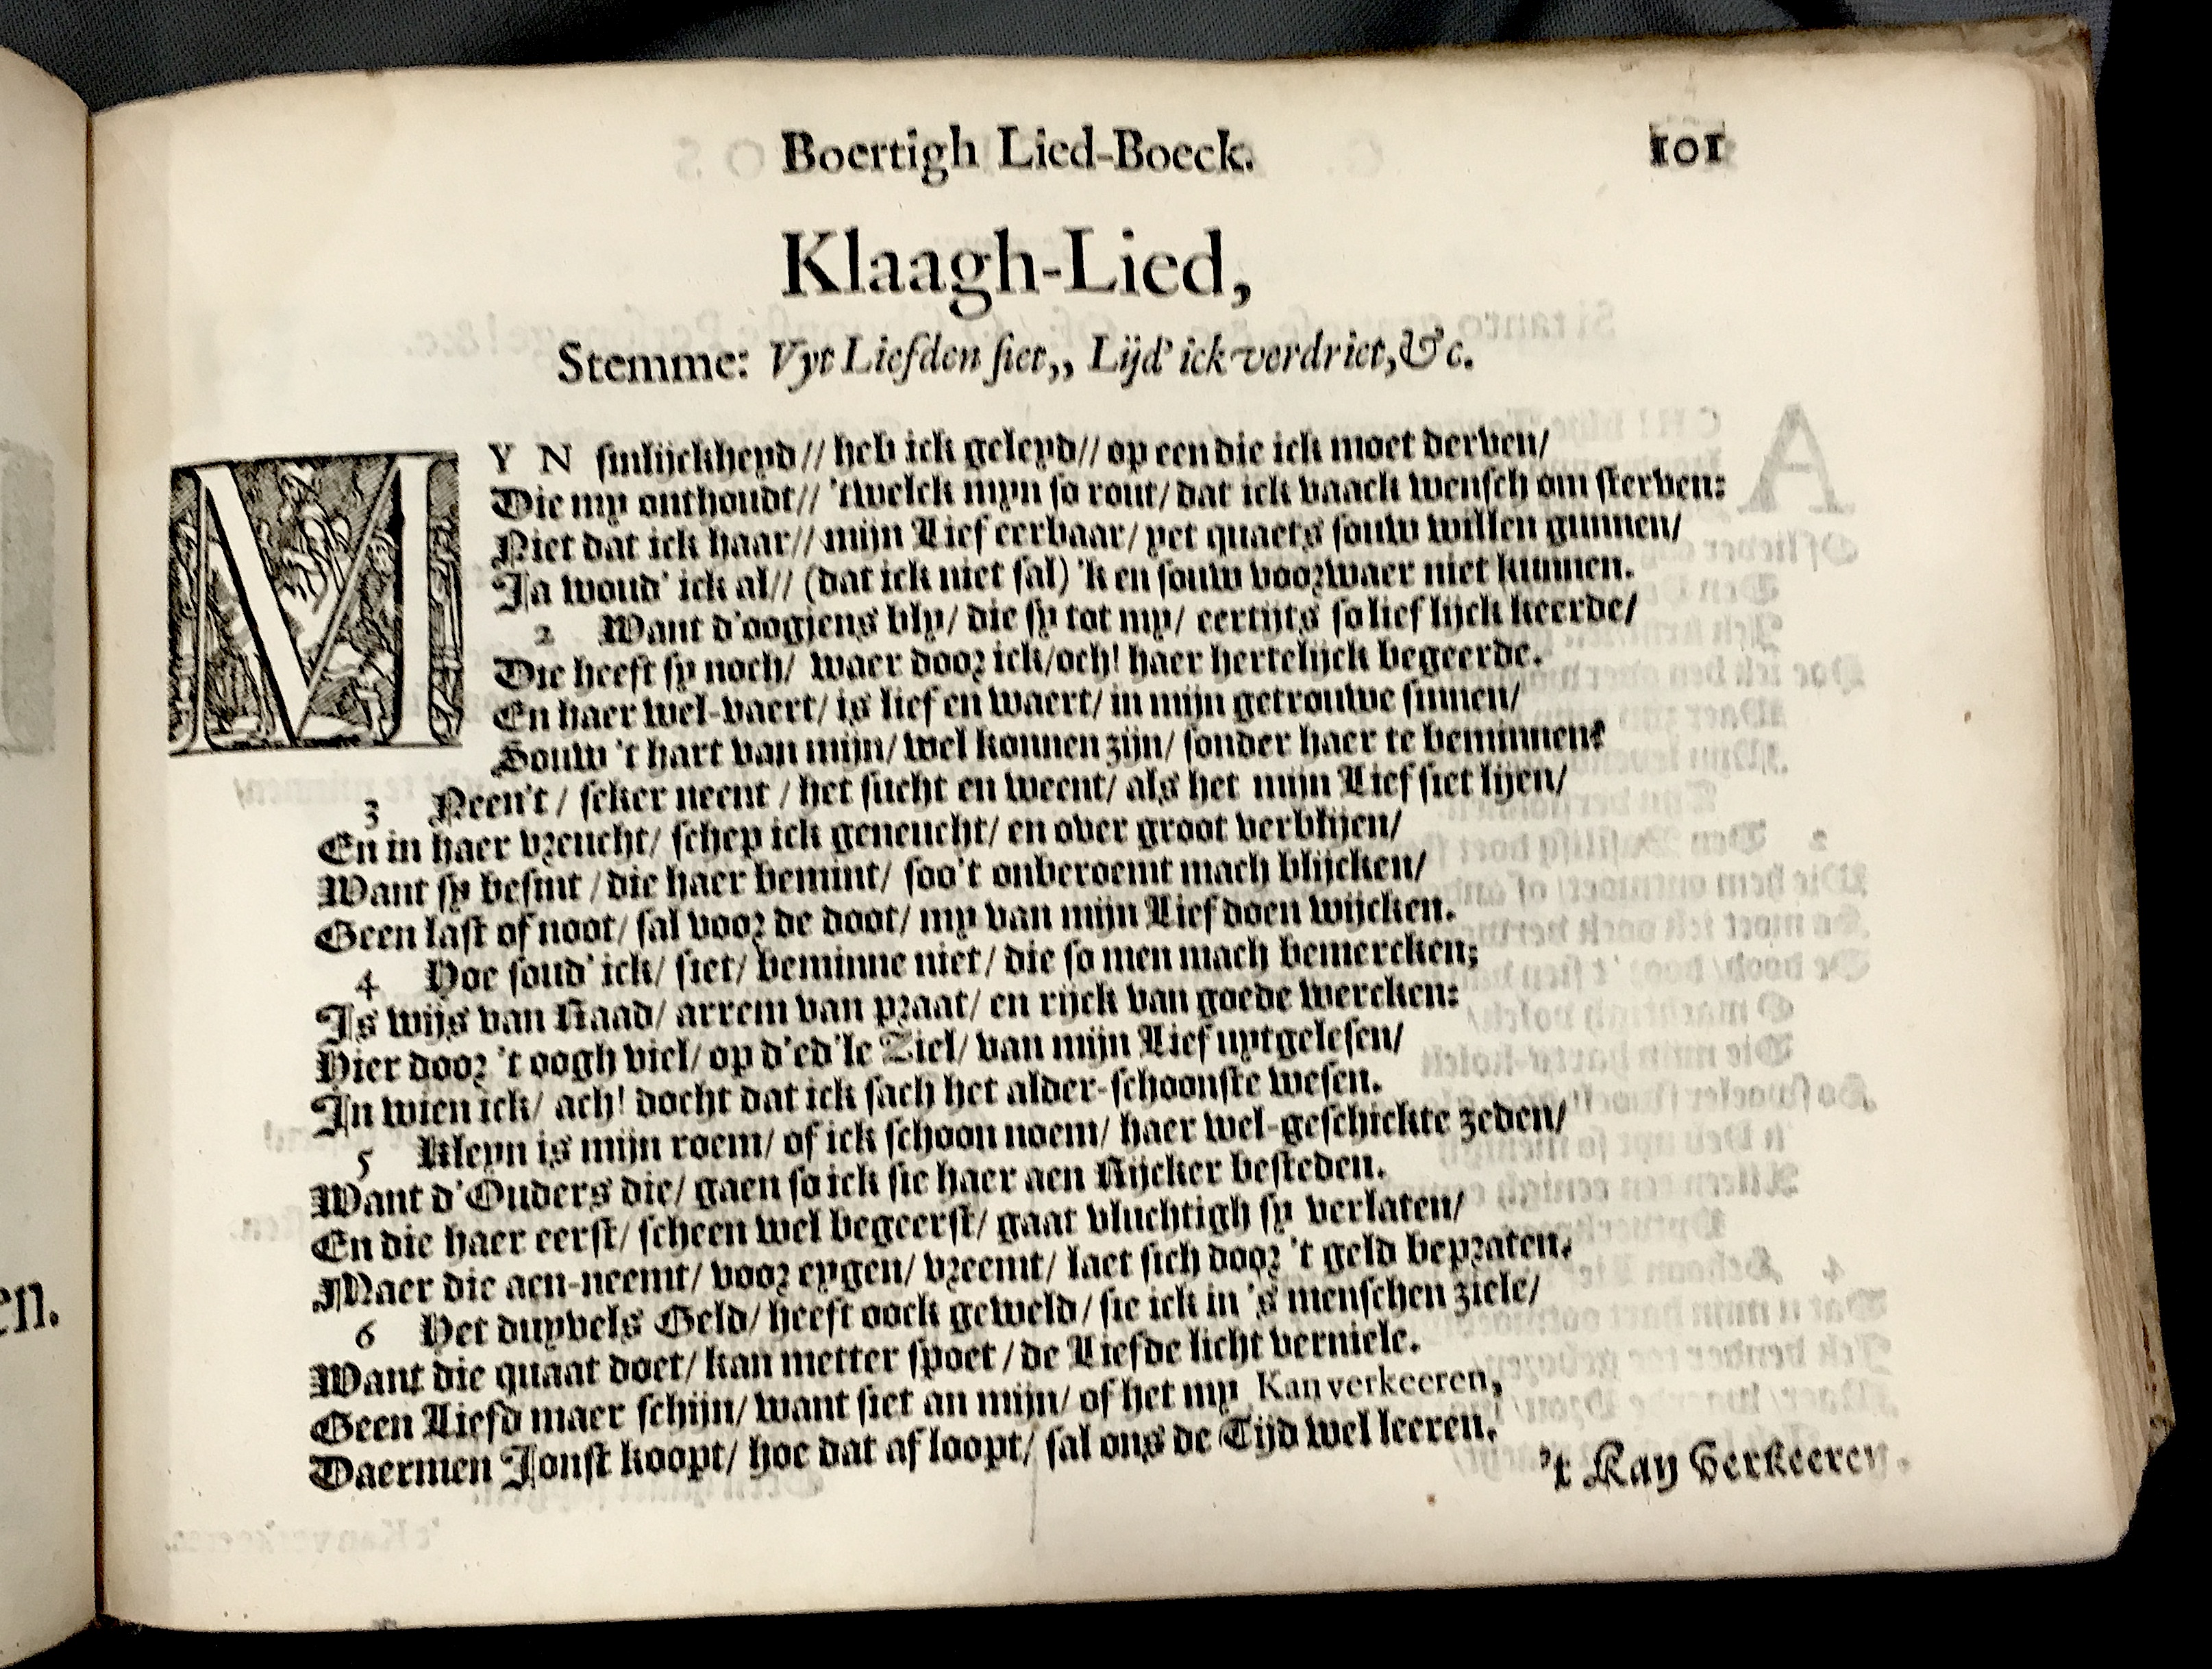 Boertigh Lied-Boeck. 101
Klaagh-Lied,
Stemme: Vyt Liefden siet,, Lijd' ick verdriet, &c.
MYN sinlijckheyd // heb ick geleyd // op een die ick moet derven /
Die my onthoudt // 'twelck myn so rout / dat ick vaack wensch om sterven:
Niet dat ick haar // mijn Lief eerbaar / yet quaets souw willen gunnen /
Ja woud' ick al // (dat ick niet sal) 'k en souw voorwaer niet kunnen.
2 Want d'oogjens bly / die sy tot my / eertijts so lieflijck keerde /
Die heeft sy noch / waer door ick / och! haer hertelijck begeerde.
En haer wel-vaert / is lief en waert / in mijn getrouwe sinnen /
Souw 't hart van mijn / wel konnen zijn / sonder haer te beminnen?
3 Neen't / seker neent / het sucht en weent / als het mijn Lief siet lijen /
En in haer vreucht / schep ick geneucht / en over groot verblijen /
Want sy besint / die haer bemint / soo't onberoemt mach blijcken /
Geen last of noot / sal voor de doot / my van mijn Lief doen wijcken.
4 Hoe soud' ick / siet / beminne niet / die so men mach bemercken;
Is wijs van Raad / arrem van praat / en rijck van goede wercken:
Hier door 't oogh viel / op d'ed'le Ziel / van mijn Lief uytgelesen /
In wien ick / ach! docht dat ick sach het alder-schoonste wesen.
5 Kleyn is mijn roem / of ick schoon noem / haer wel-geschickte zeden /
Want d'Ouders die / gaen so ick sie haer aen Rijcker besteden.
En die haer eerst / scheen wel begeerst / gaat vluchtigh sy verlaten /
Maer die aen-neemt / voor eygen / vreemt / laet sich door 't geld bepraten.
6 Het duyvels Geld / heeft oock geweld / sie ick in 's menschen ziele /
Want die quaat doet / kan metter spoet / de Liefde licht verniele.
Geen Liefd maer schijn / want siet an mijn / of het my Kan verkeeren,
Daermen Jonst koopt / hoe dat af loopt / sal ons de Tijd wel leeren.
't Kan verkeeren.